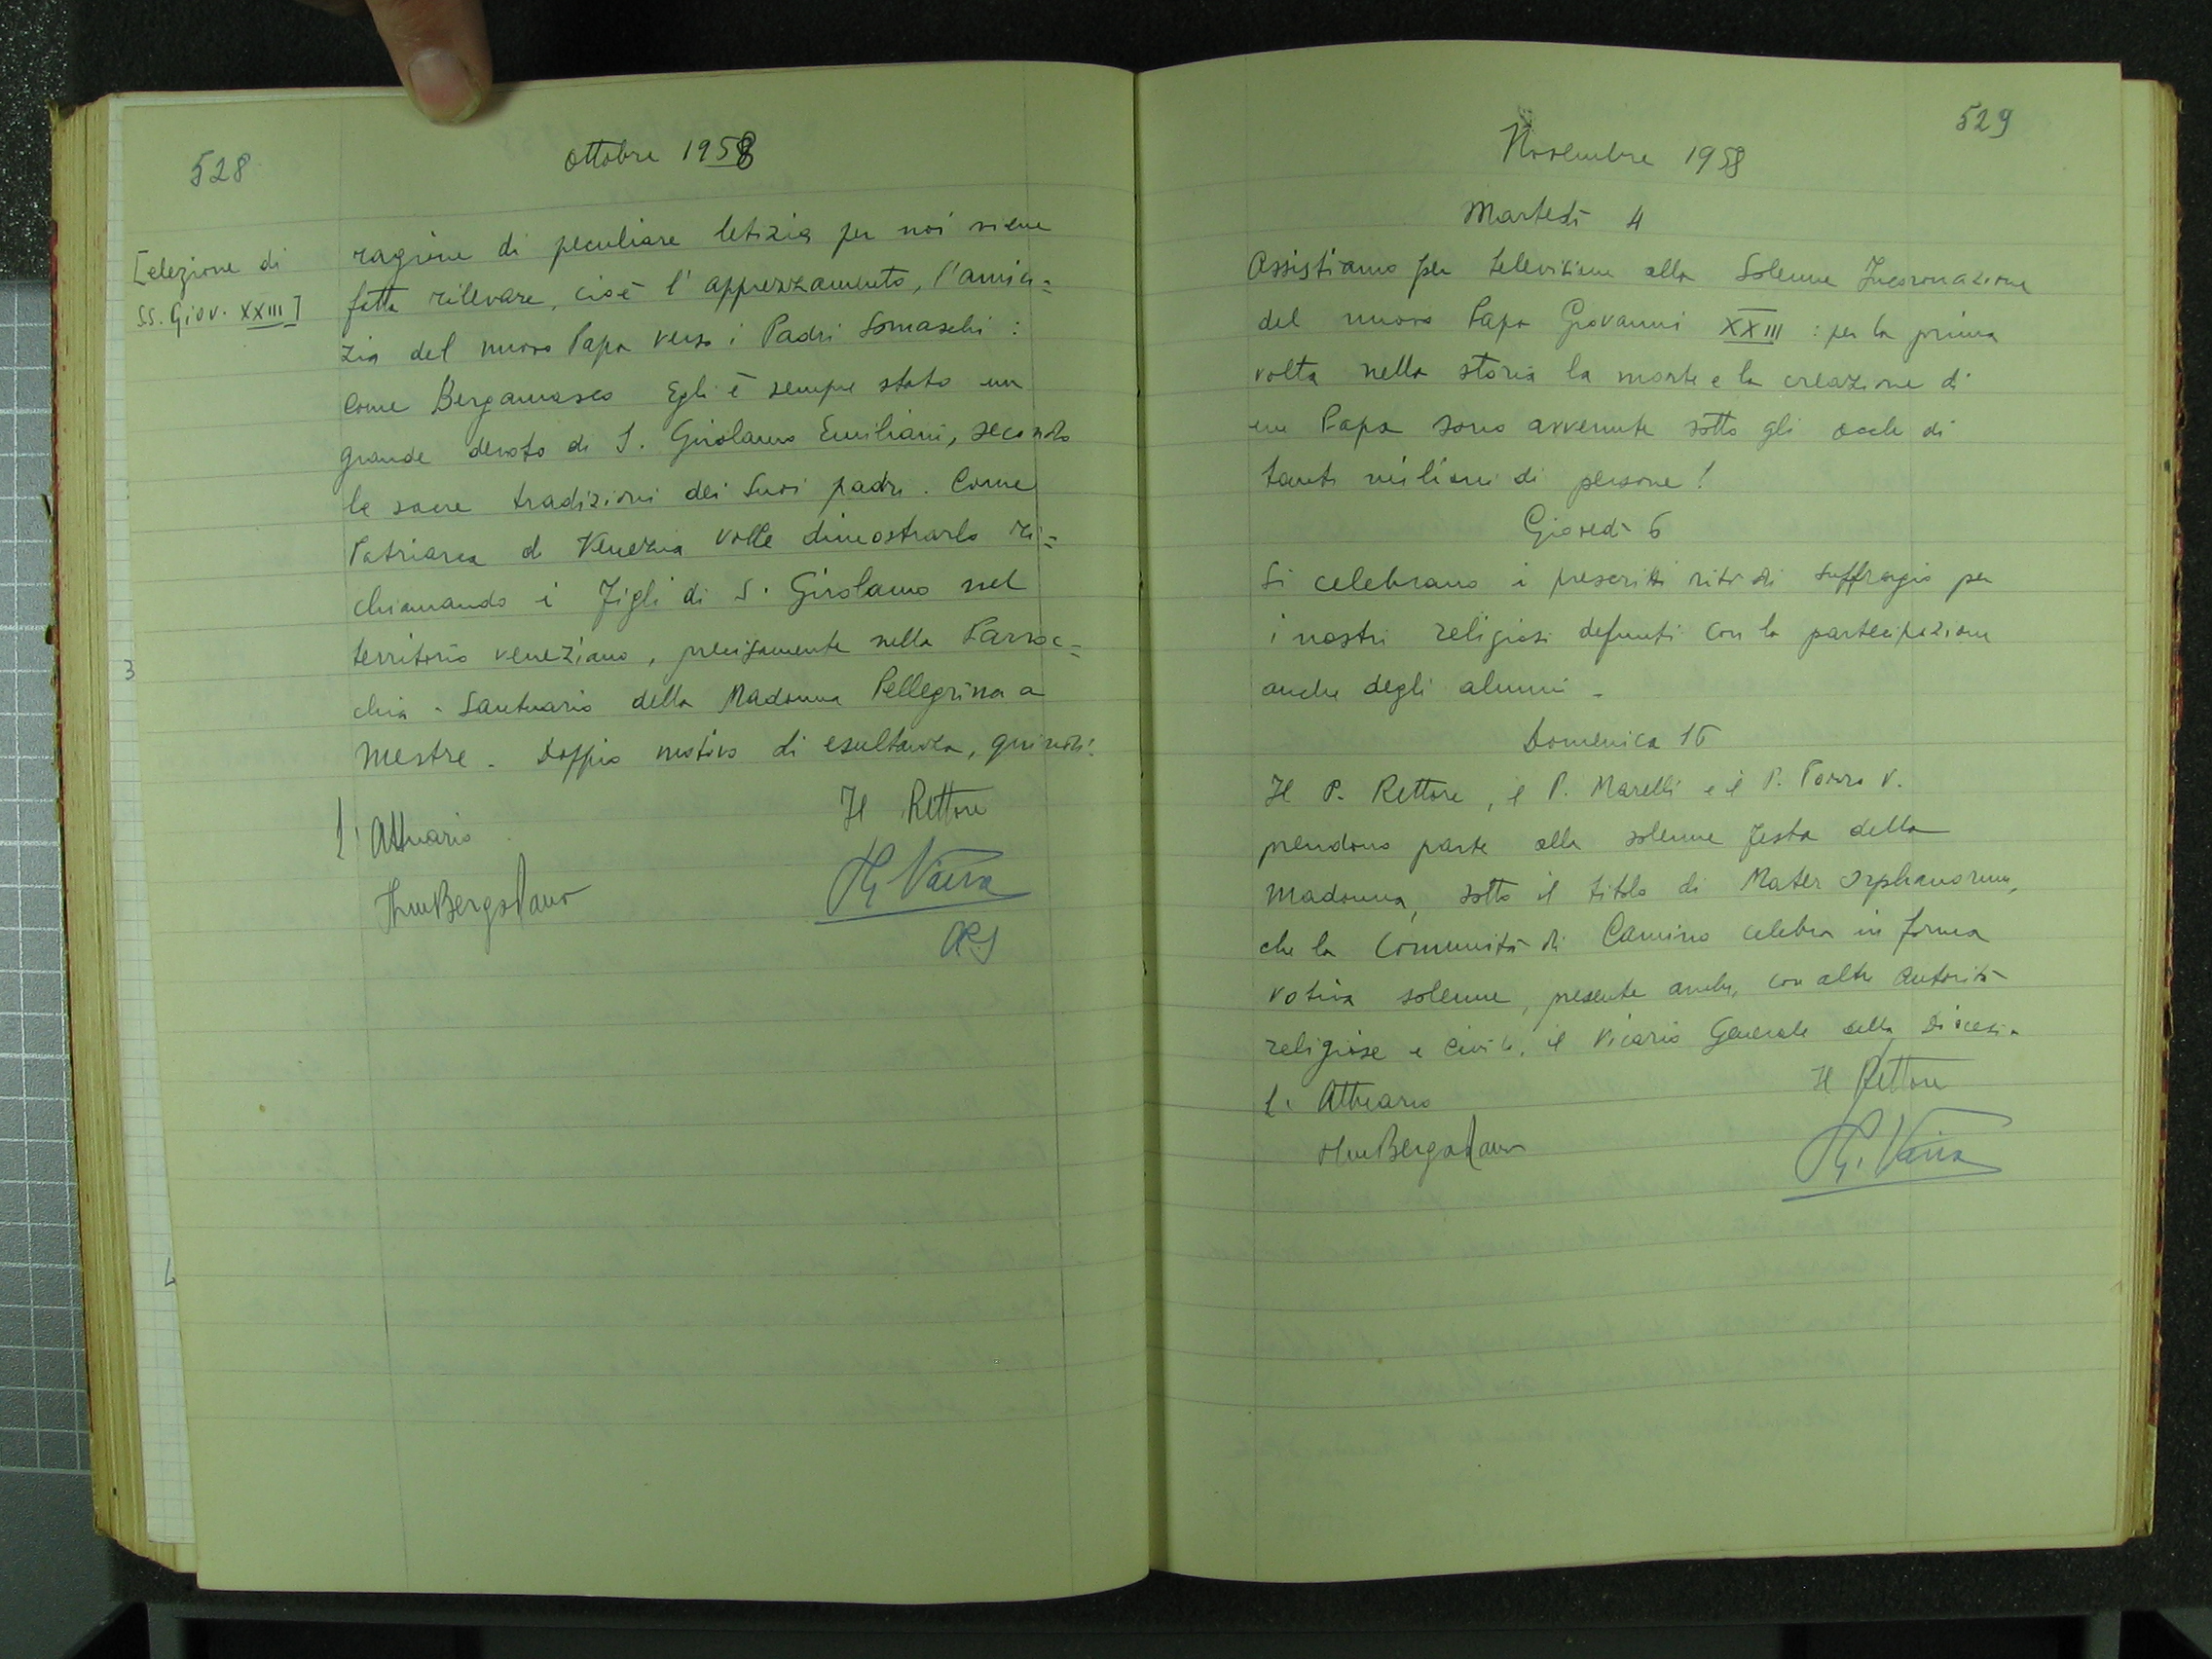 528
ottobre 1958
[elezione di
SS. Giov. XXIII]
ragione di peculiare letizia per noi viene
fatta rilevare, cioè l'apprezzamento, l'amici=
zia del nuovo Papa verso i Padri Somaschi:
Come Bergamasco Egli è sempre stato un
grande devoto di S. Girolamo Emiliani, secondo
le sacre tradizioni dei Suoi padri. Come
Patriarca di Venezia volle dimostrarlo ri=
chiamando i Figli di S. Girolamo nel
territorio veneziano, precisamente nella Parroc=
chia - Santuario della Madonna Pellegrina a
Mestre. Doppio motivo di esultanza, quindi!
L'Attuario
Il Rettore
Bergadano
G. Vaira
CRS
529
Novembre 1958
Martedì 4
Assistiamo per televisione alla Solenne Incoronazione
del nuovo Papa Giovanni XXIII: per la prima
volta nella storia la morte e la creazione di
un Papa sono avvenute sotto gli occhi di
tanti milioni di persone!
Giovedì 6
Si celebrano i prescritti riti di suffragio per
i nostri religiosi defunti con la partecipazione
anche degli alunni.
Domenica 16
Il P. Rettore, il P. Marelli e il P. V.
prendono parte alla solenne festa della
Madonna, sotto il titolo di Mater Orphanorum,
che la Comunità di Camino celebra in forma
votiva solenne, presente anche, con altre autorità
religiose e civili, il Vicario Generale della Diocesi.
L'Attuario
Il Rettore
Bergadano
G. Vaira